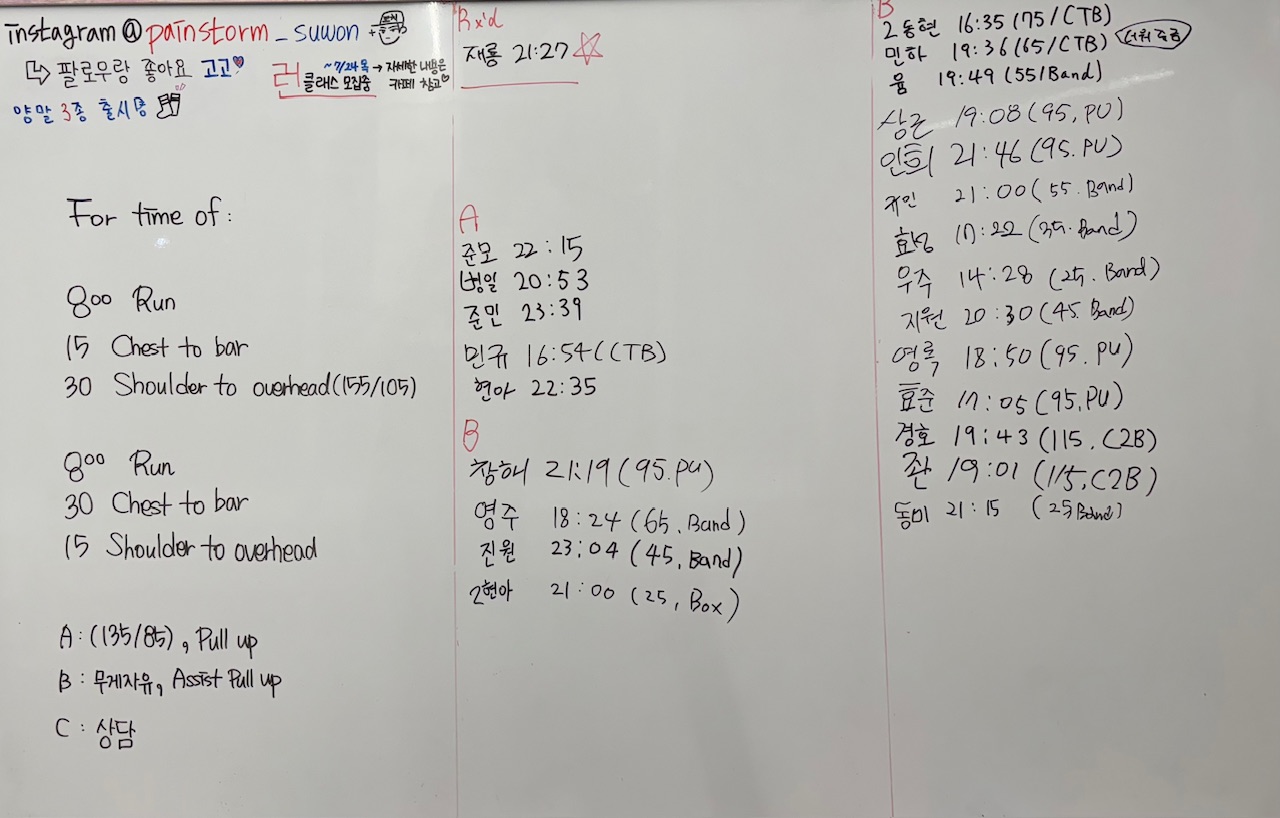 instagram @ painstorm_suwon
↳ 팔로우랑 좋아요 고고♥
양말 3종 출시중
러 ~7/24 목 → 자세한 내용은
클래스 모집중 카페 참고♡
For time of :
800 Run
15 Chest to bar
30 Shoulder to overhead(155/105)
800 Run
30 Chest to bar
15 Shoulder to overhead
A : (135/85) , Pull up
B : 무게자유, Assist Pull up
C : 상담
Rx'd
재룡 21:27 ☆
A
준모 22:15
병일 20:53
준민 23:39
민규 16:54(CTB)
현아 22:35
B
창해 21:19 (95.PU)
영주 18:24 (65, Band)
진원 23:04 (45, Band)
2현아 21:00 (25, Box)
B
2동현 16:35 (75/CTB)
민하 19:36 (65/CTB)
윰 19:49 (55/Band)
상근 19:08 (95, PU)
인희 21:46 (95.PU)
21:00 (55. Band)
효성 17:22 (35. Band)
우주 14:28 (25. Band)
지원 20:30 (45. Band)
영록 18:50 (95. PU)
효준 17:05 (95, PU)
경호 19:43 (115, C2B)
19:01 (115, C2B)
동미 21:15 (25 Band)